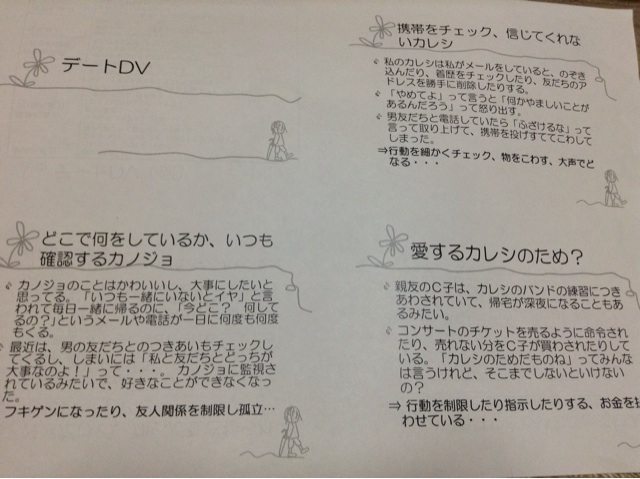 デートDV
携帯をチェック、信じてくれな
いカレシ
私のカレシは私がメールをしていると、のぞき
込んだり、着歴をチェックしたり、友だちのア
ドレスを勝手に削除したりする。
「やめてよ」って言うと「何かやましいことが
あるんだろう」って怒り出す。
男友だちと電話していたら「ふざけるな」って
言って取り上げて、携帯を投げすててこわして
しまった。
⇒行動を細かくチェック、物をこわす、大声でど
なる・・・
どこで何をしているか、いつも
確認するカノジョ
カノジョのことはかわいいし、大事にしたいと
思ってる。「いつも一緒にいないとイヤ」と言
われて毎日一緒に帰るのに、「今どこ？ 何して
るの？」というメールや電話が一日に何度も何度
もくる。
最近は、男の友だちとのつきあいもチェック
してくるし、しまいには「私と友だちとどっちが
大事なのよ！」って・・・。 カノジョに監視さ
れているみたいで、好きなことができなくなっ
た。
フキゲンになったり、友人関係を制限し孤立…
愛するカレシのため？
親友のC子は、カレシのバンドの練習につき
あわされていて、帰宅が深夜になることもあ
るみたい。
コンサートのチケットを売るように命令され
たり、売れない分をC子が買わされたりして
いる。「カレシのためだものね」ってみんな
は言うけれど、そこまでしないといけない
の？
⇒ 行動を制限したり指示したりする、お金を
わせている・・・